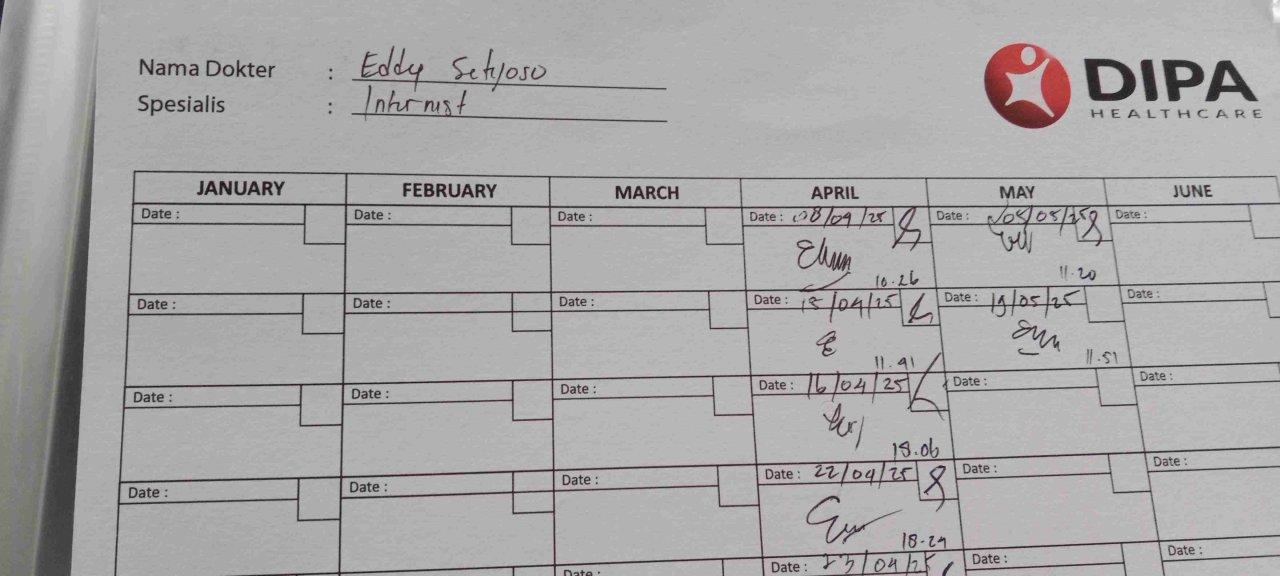 Nama Dokter : Eddy Setyoso
Spesialis : Internist
DIPA
HEALTHCARE
JANUARY FEBRUARY MARCH APRIL MAY JUNE
Date : Date : Date : Date : 08/04/25 Date : 05/05/25 Date :
10.26 11.20
Date : Date : Date : Date : 15/04/25 Date : 19/05/25 Date :
11.41 11.51
Date : Date : Date : Date : 16/04/25 Date : Date :
18.06
Date : Date : Date : Date : 22/04/25 Date : Date :
18.29
Date : Date : 23/04/25 Date : Date :